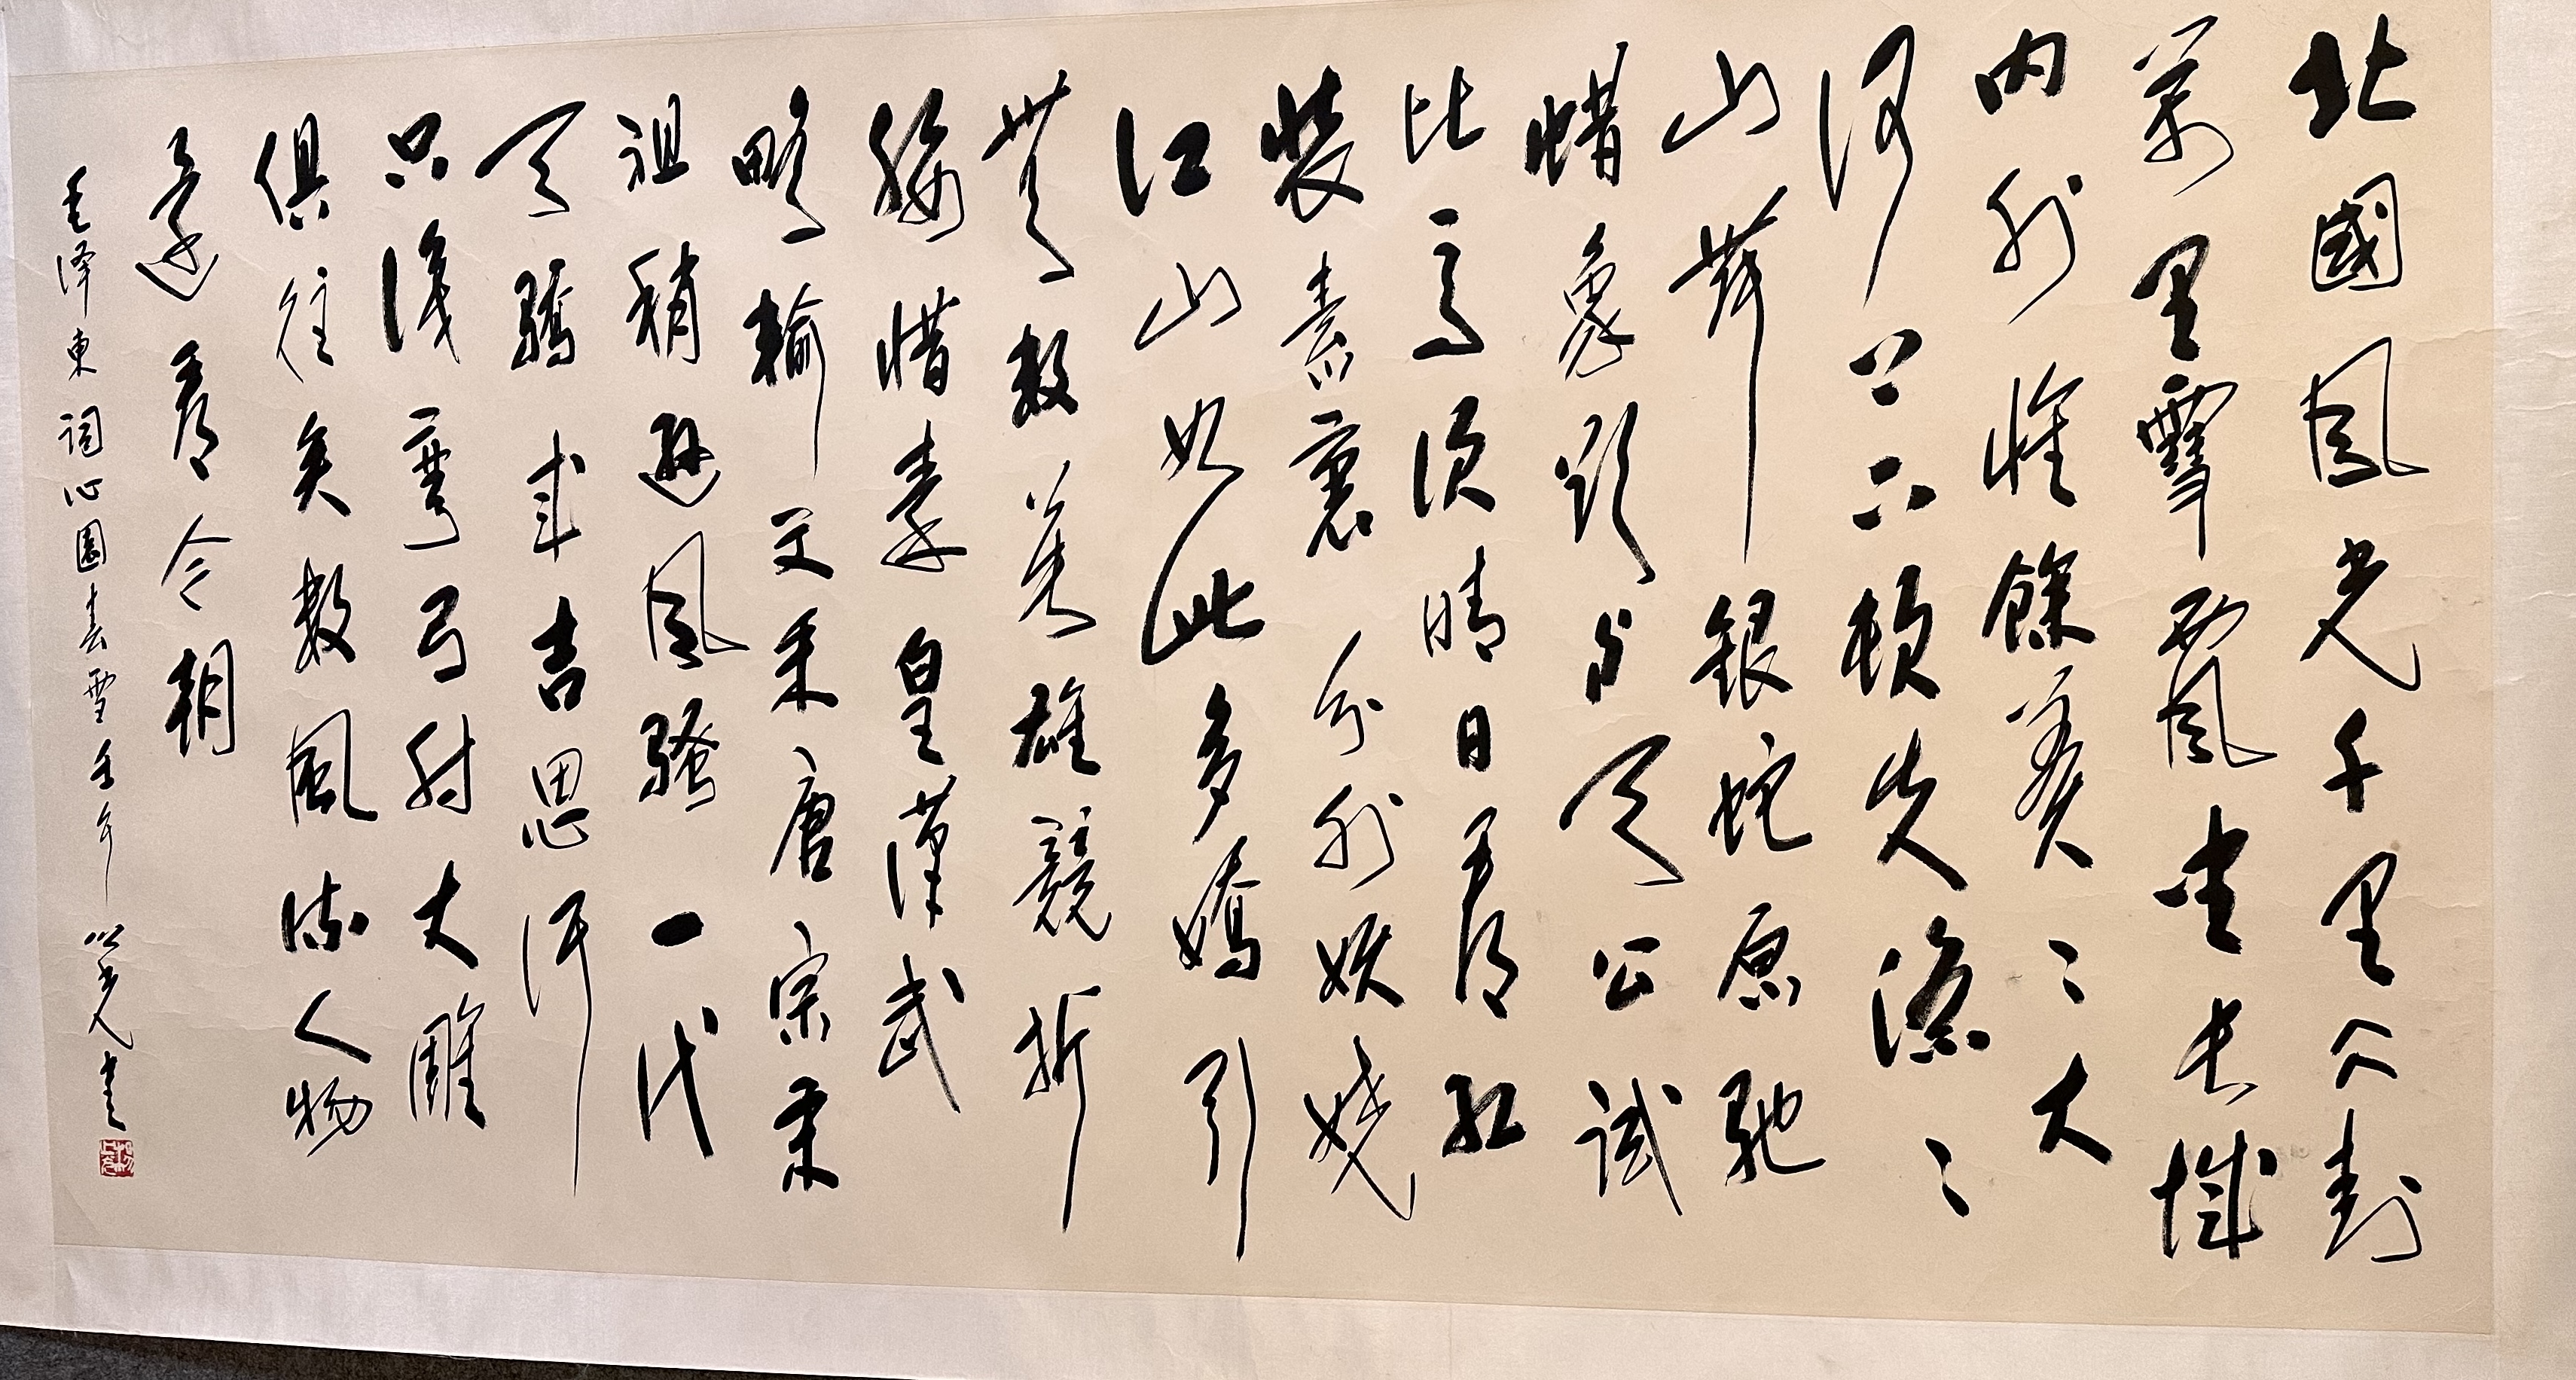 北國風光千里冰封
萬里雪飄望長城
内外惟餘莽〻大
河上下頓失滔〻
山舞銀蛇原馳
蜡象欲与天公試
比高須晴日看紅
裝素裹分外妖嬈
江山如此多嬌引
無数英雄競折
腰惜秦皇漢武
略輸文采唐宗宋
祖稍遜風騷一代
天驕成吉思汗
只識彎弓射大雕
俱往矣数風流人物
還看今朝
毛泽東詞沁園春雪壬午 光書